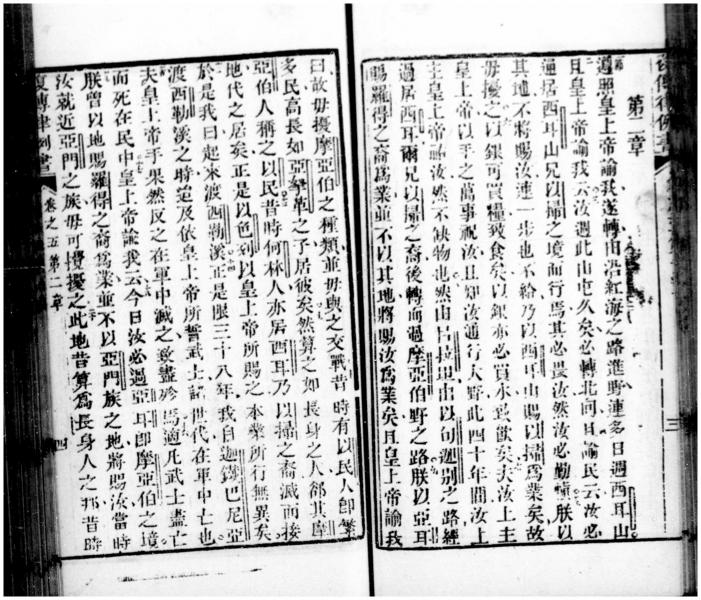 第二章
遵照皇上帝諭我遂轉由沿紅海之路進野連多日週西耳山
且皇上帝諭我云汝週此山屯久矣必轉北向且諭民云汝必
過居西耳山兄以掃之境而行焉其必畏汝然汝必勤慎朕以
其地不將賜汝連一步也不給乃以西耳山賜以掃為業矣故
毋擾之以銀可買糧致食矣以銀亦必買水致飲矣夫汝上主
皇上帝以手之萬事祝汝且知汝通行大野此四十年間汝上
主皇上帝臨汝然不缺物也然由片拉場出以旬迦別之路經
過居西耳爾兄以掃之裔後轉而過摩亞伯野之路朕以亞耳
賜羅得之裔為業並不以其地將賜汝為業矣且皇上帝諭我
曰故毋擾摩亞伯之種類並毋與之交戰昔時有以民人即繁
多民高長如亞拏革之子居彼矣然算之如長身之人都其摩
亞伯人稱之以民昔時何林人亦居西耳乃以掃之裔滅而接
地代之居矣正是以色列以皇上帝所賜之本業所行無異矣
於是我曰起來渡西勒溪正是限三十八年我自迦鐸巴尼亞
渡西勒溪之時迨及依皇上帝所誓武士諸世代在軍中亡也
夫皇上帝手果然反之在軍中滅之致盡殄焉適凡武士盡亡
而死在民中皇上帝諭我云今日汝必過亞耳即摩亞伯之境
朕曾以地賜羅得之裔為業並不以亞門族之地將賜汝當時
汝就近亞門之族毋可攪擾之此地昔算為長身人之邦昔時
復傳律例書
卷之五第二章
四